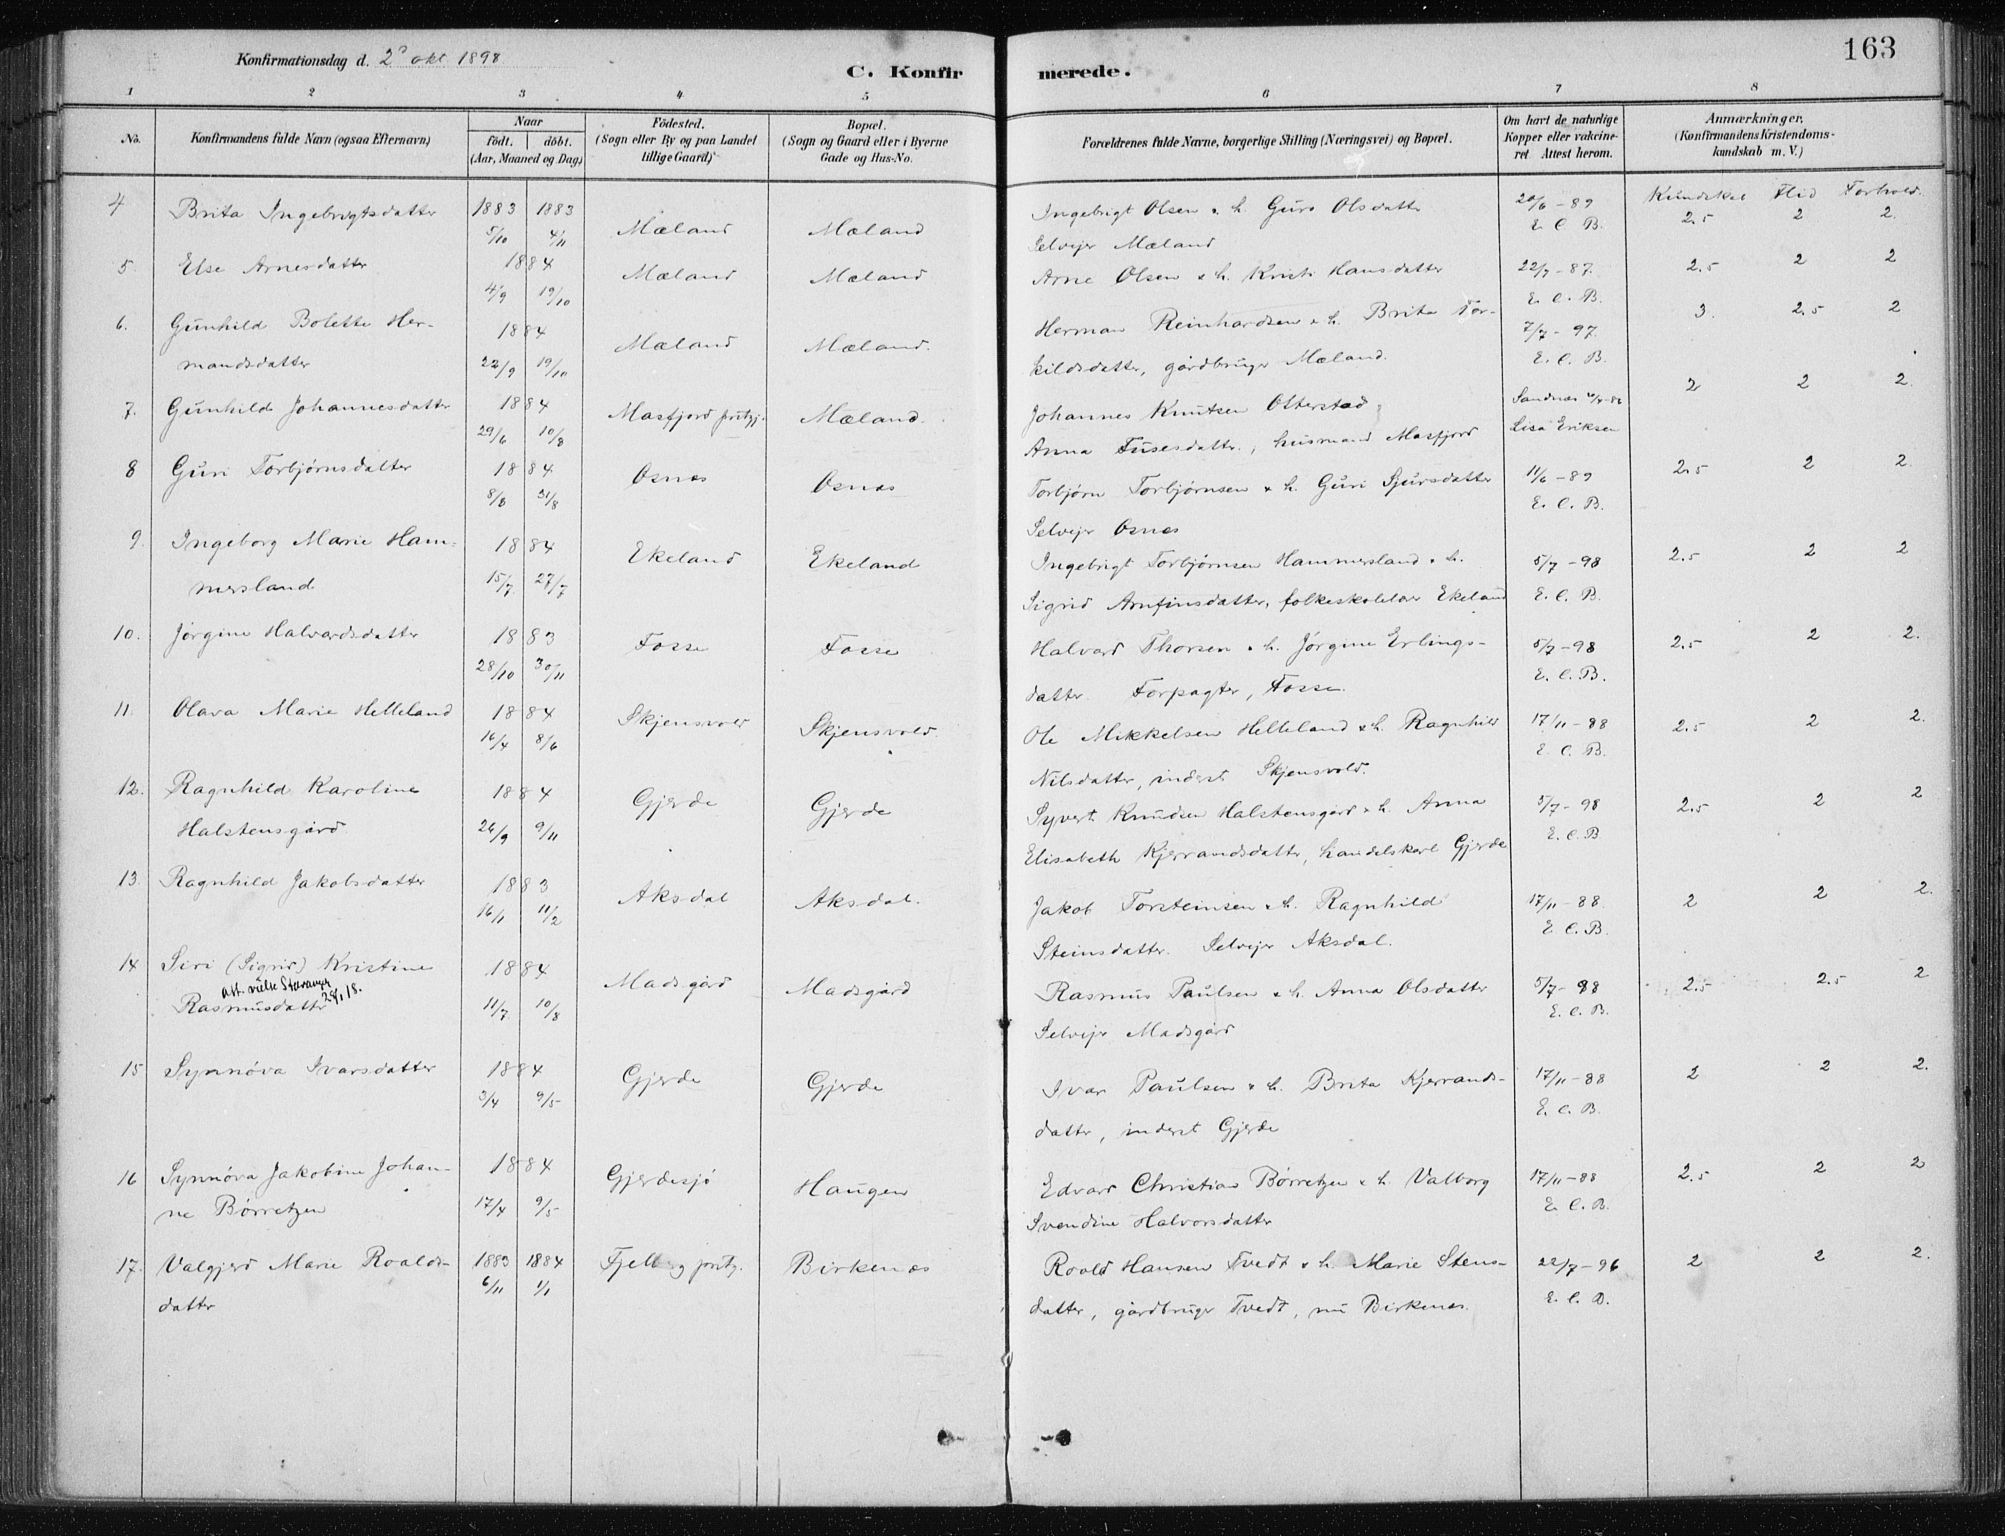 Konfirmationsdag d. 2? okt 1898
C. Konfirmerede.
163
1 2 3 4 5 6 7 8
No.
Konfirmandens fulde Navn (ogsaa Efternavn)
Naar
födt. döbt.
(Aar, Maaned og Dag)
Födested.
(Sogn eller By og paa Landet
tillige Gaard)
Bopæl.
(Sogn og Gaard eller i Byerne
Gade og Hus-No.
Forældrenes fulde Navne, borgerlige Stilling (Næringsvei) og Bopæl.
Om havt de naturlige
Kopper eller vakcine-
ret Attest herom.
Anmærkninger.
(Konfirmandens Kristendoms-
kundskab m. V.)
Kundskab Flid Forhold.
4 Brita Ingebrigtsdatter 1883 1883 Mæland Mæland Ingebrigt Olsen & h. Guro Olsdatter 20/6 - 89 2.5 2 2.
5/10 4/11 Selvejer Mæland E. C. B.
5 Else Arnesdatter 1884 Mæland Mæland Arne Olsen & h. Kristi Hansdatter 22/7 - 87. 2.5 2 2
4/9 19/10 E. C. B.
6. Gunhild Bolette Her- 1884 Mæland Mæland. Herman Reinhardsen & h. Brita Tor- 7/7 - 97. 3. 2.5 2
mandsdatter 22/9 19/10 kildsdatter, gårdbruger Mæland. E. C. B.
7. Gunhild Johannesdatter 1884 Masfjord prstgj. Mæland. Johannes Knutsen Otterstad Sandnæs 2 2 2.
29/6 10/8 Anna Fusesdatter, husmand Masfjord Lisa Eriksen
8 Guri Torbjørnsdatter 1884 Osnes Osnes Torbjørn Torbjørnsen & h. Guri Sjursdatter 11/6 - 89 2.5 2 2.
8/8 31/8 Selvejer Osnes E. C. B.
9. Ingeborg Marie Ham- 1884 Ekeland Ekeland Ingebrigt Torbjørnsen Hammersland & h. 5/7 - 98 2.5 2 2
mersland 15/7 27/7 Sigrid Arnfinsdatter, folkeskolelær Ekeland E. C. B.
10. Jørgine Halvardsdatter 1883 Fosse Fosse Halvard Thorsen & h. Jørgine Erlings- 5/7 - 98 2.5 2 2.
28/10 30/11 datter. Forpagter, Fosse. E. C. B.
11. Olava Marie Helleland 1884 Skjensvold Skjensvold. Ole Mikkelsen Helleland & h. Ragnhild 17/11 - 88 2.5 2 2.
16/4 8/6 Nilsdatter, inderst Skjensvold. E. C. B.
12. Ragnhild Karoline 1884 Gjerde Gjerde Syvert Knudsen Halstensgård & h. Anna 5/7 - 98 2.5 2 2
Halstensgård 26/9 9/11 Elisabeth Kjerrandsdatter, handelskarl Gjerde E. C. B
13. Ragnhild Jakobsdatter 1883 Aksdal Aksdal. Jakob Torsteinsen & h. Ragnhild 17/11 - 88. 2 2 2.
16/1 11/2 Steinsdatter. Selvejer Aksdal. E. C. B.
14 Siri (Sigrid) Kristine 1884 Madsgård Madsgård Rasmus Paulsen & h. Anna Olsdatter 5/7 - 98 2.5 2.5 2
att. vielse Stavanger
Rasmusdatter 11/7 10/8 Selvejer Madsgård E. C. B.
15 Synnöva Ivarsdatter 1884 Gjerde Gjerde Ivar Paulsen & h. Brita Kjerrands- 17/11 - 88 2 2 2.
3/4 9/5 datter, inderst Gjerde E. C. B.
16 Synnöva Jakobine Johan- 1884 Gjerdesjö Haugen Edvard Christian Börretzen & h. Valborg 17/11 - 88 2.5 2 2
ne Börretzen 17/4 9/5 Svendine Halvorsdatter E. C. B.
17. Valgjerd Marie Roalds- 1883 1884 Fjelberg prstg. Birkenes Roald Hansen Tvedt & h. Marie Stens- 22/7 - 96 2 2 2.
datter 6/11 1/1 datter, gårdbruger Tvedt, nu Birkenes. E. C. B.